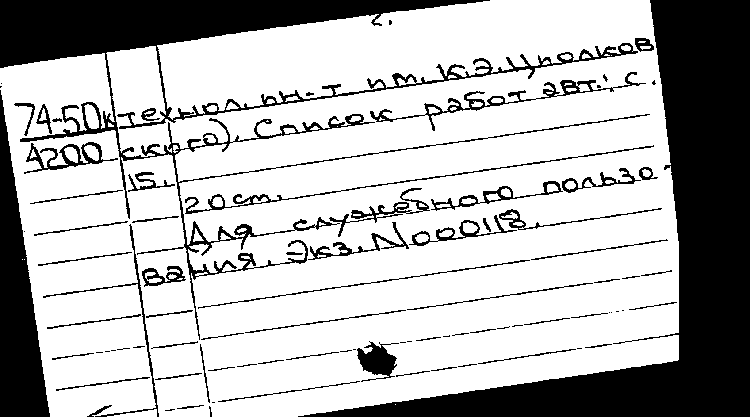 2.
74-50к технол. ин-т им. К.Э. Циолков
4200 ского). Список работ авт.: с.
15.
20 см.
Для служебного пользо-
вания. Экз. N000118.